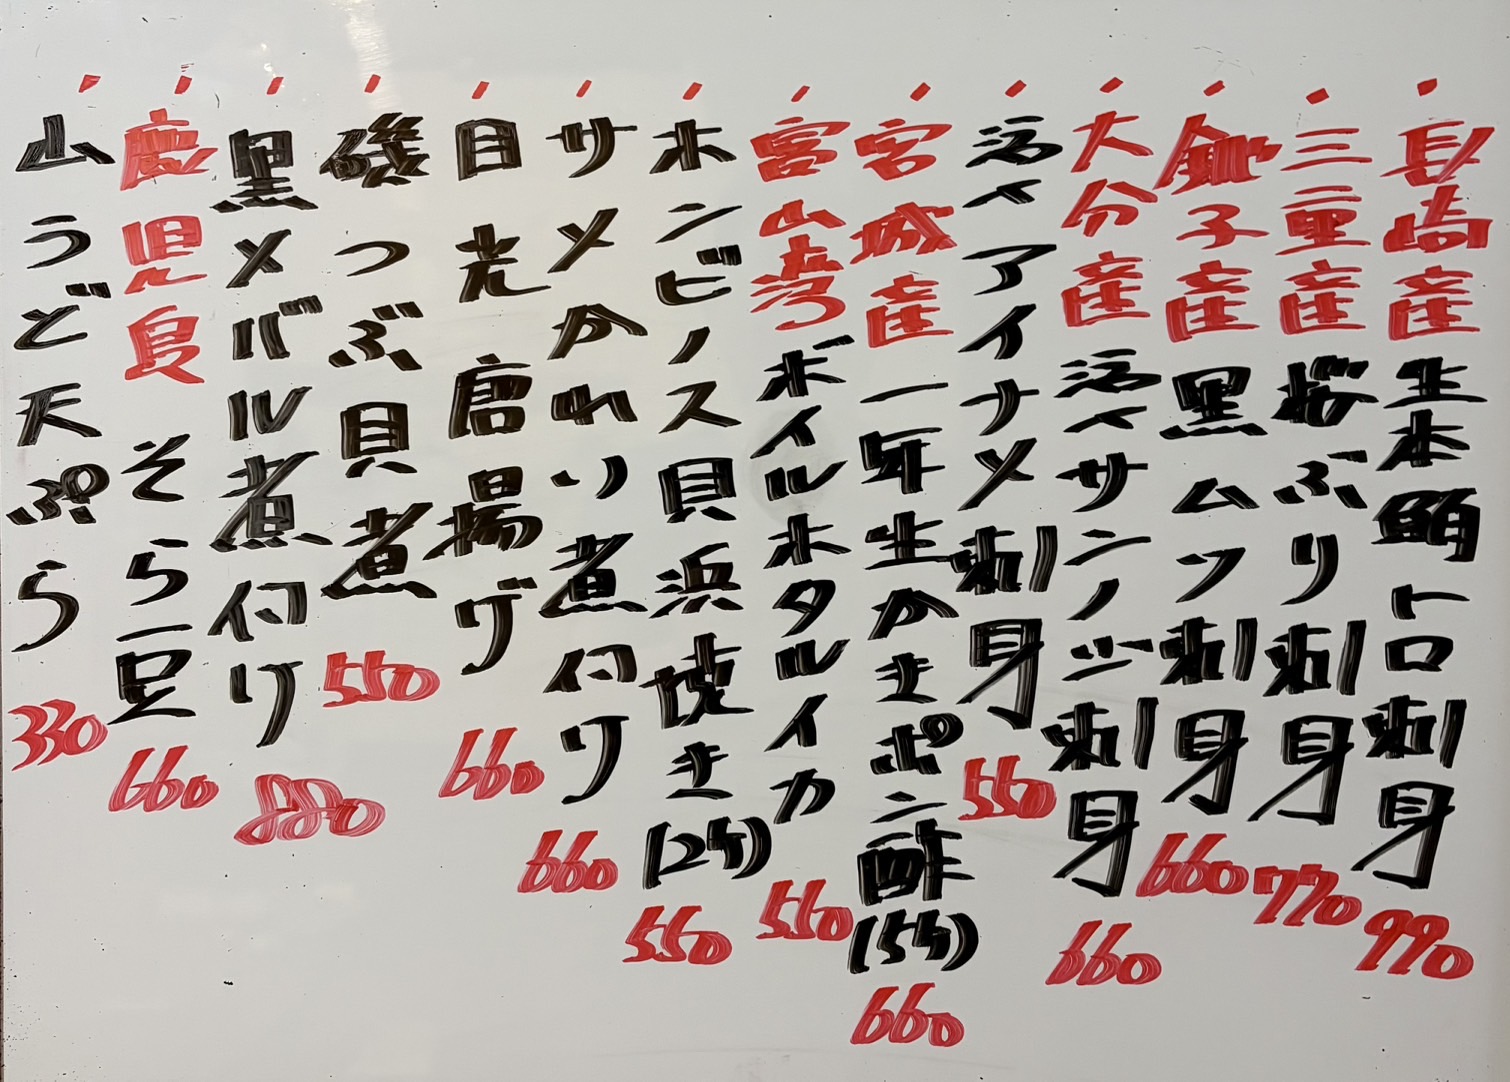 長崎産生本鮪トロ刺身 990
三重産桜ぶり刺身 770
銚子産黒ムツ刺身 660
大分産活〆サンノジ刺身 660
活〆アイナメ刺身 550
宮城産一年生かきポン酢(5ケ) 660
富山湾ボイルホタルイカ 550
ホンビノス貝浜焼き(2ケ) 550
サメかれい煮付け 660
目光唐揚げ 660
磯つぶ貝煮 550
黒メバル煮付け 880
鹿児島そら豆 660
山うど天ぷら 330